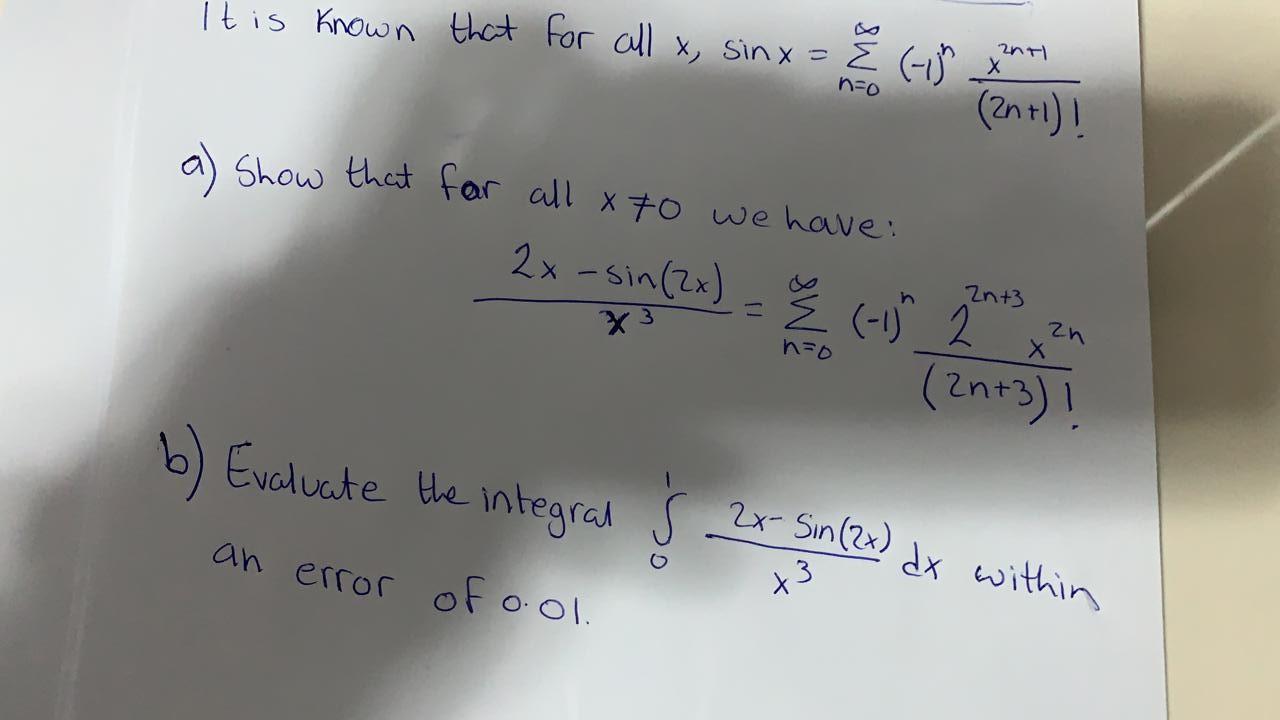 It is known that for all x, sin x = ∞∑n=0 (-1)^n x^(2n+1)/(2n+1)!
a) Show that for all x ≠ 0 we have:
(2x - sin(2x))/x^3 = ∞∑n=0 (-1)^n 2^(2n+3) x^(2n)/(2n+3)!
b) Evaluate the integral ∫_0^1 (2x - Sin(2x))/x^3 dx within
an error of 0.01.